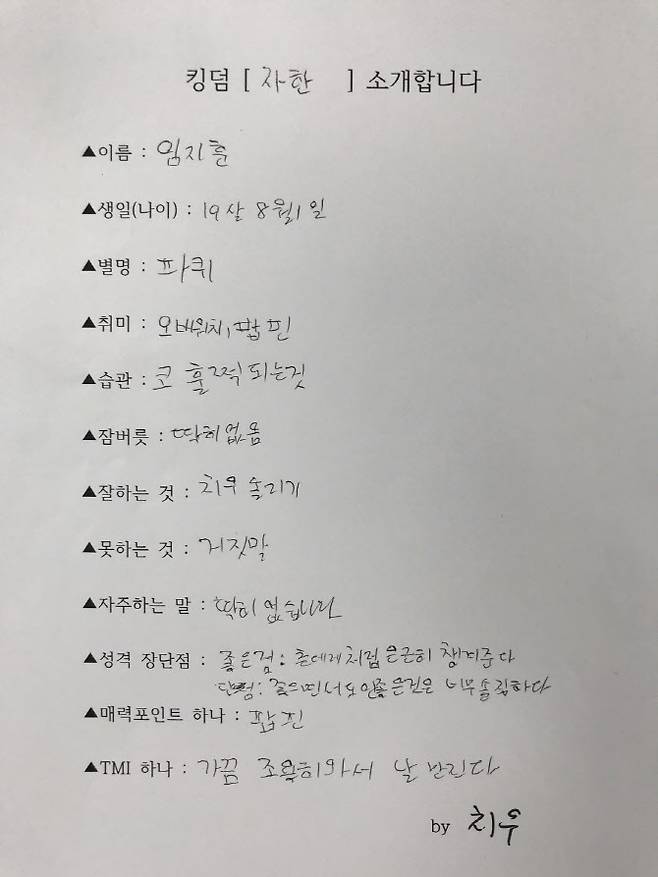 킹덤 [ 자한 ] 소개합니다
▲이름 : 임지훈
▲생일(나이) : 19살 8월 1일
▲별명 : 파퀴
▲취미 : 오버워치, 팝핀
▲습관 : 코 훌쩍 되는것
▲잠버릇 : 딱히 없음
▲잘하는 것 : 치우 놀리기
▲못하는 것 : 거짓말
▲자주하는 말 : 딱히 없습니다
▲성격 장단점 : 좋은점: 츤데레처럼 은근히 챙겨준다
단점: 좋으면서도 안좋은건은 너무 솔직하다
▲매력포인트 하나 : 팝핀
▲TMI 하나 : 가끔 조용히와서 날 때린다
by 치우